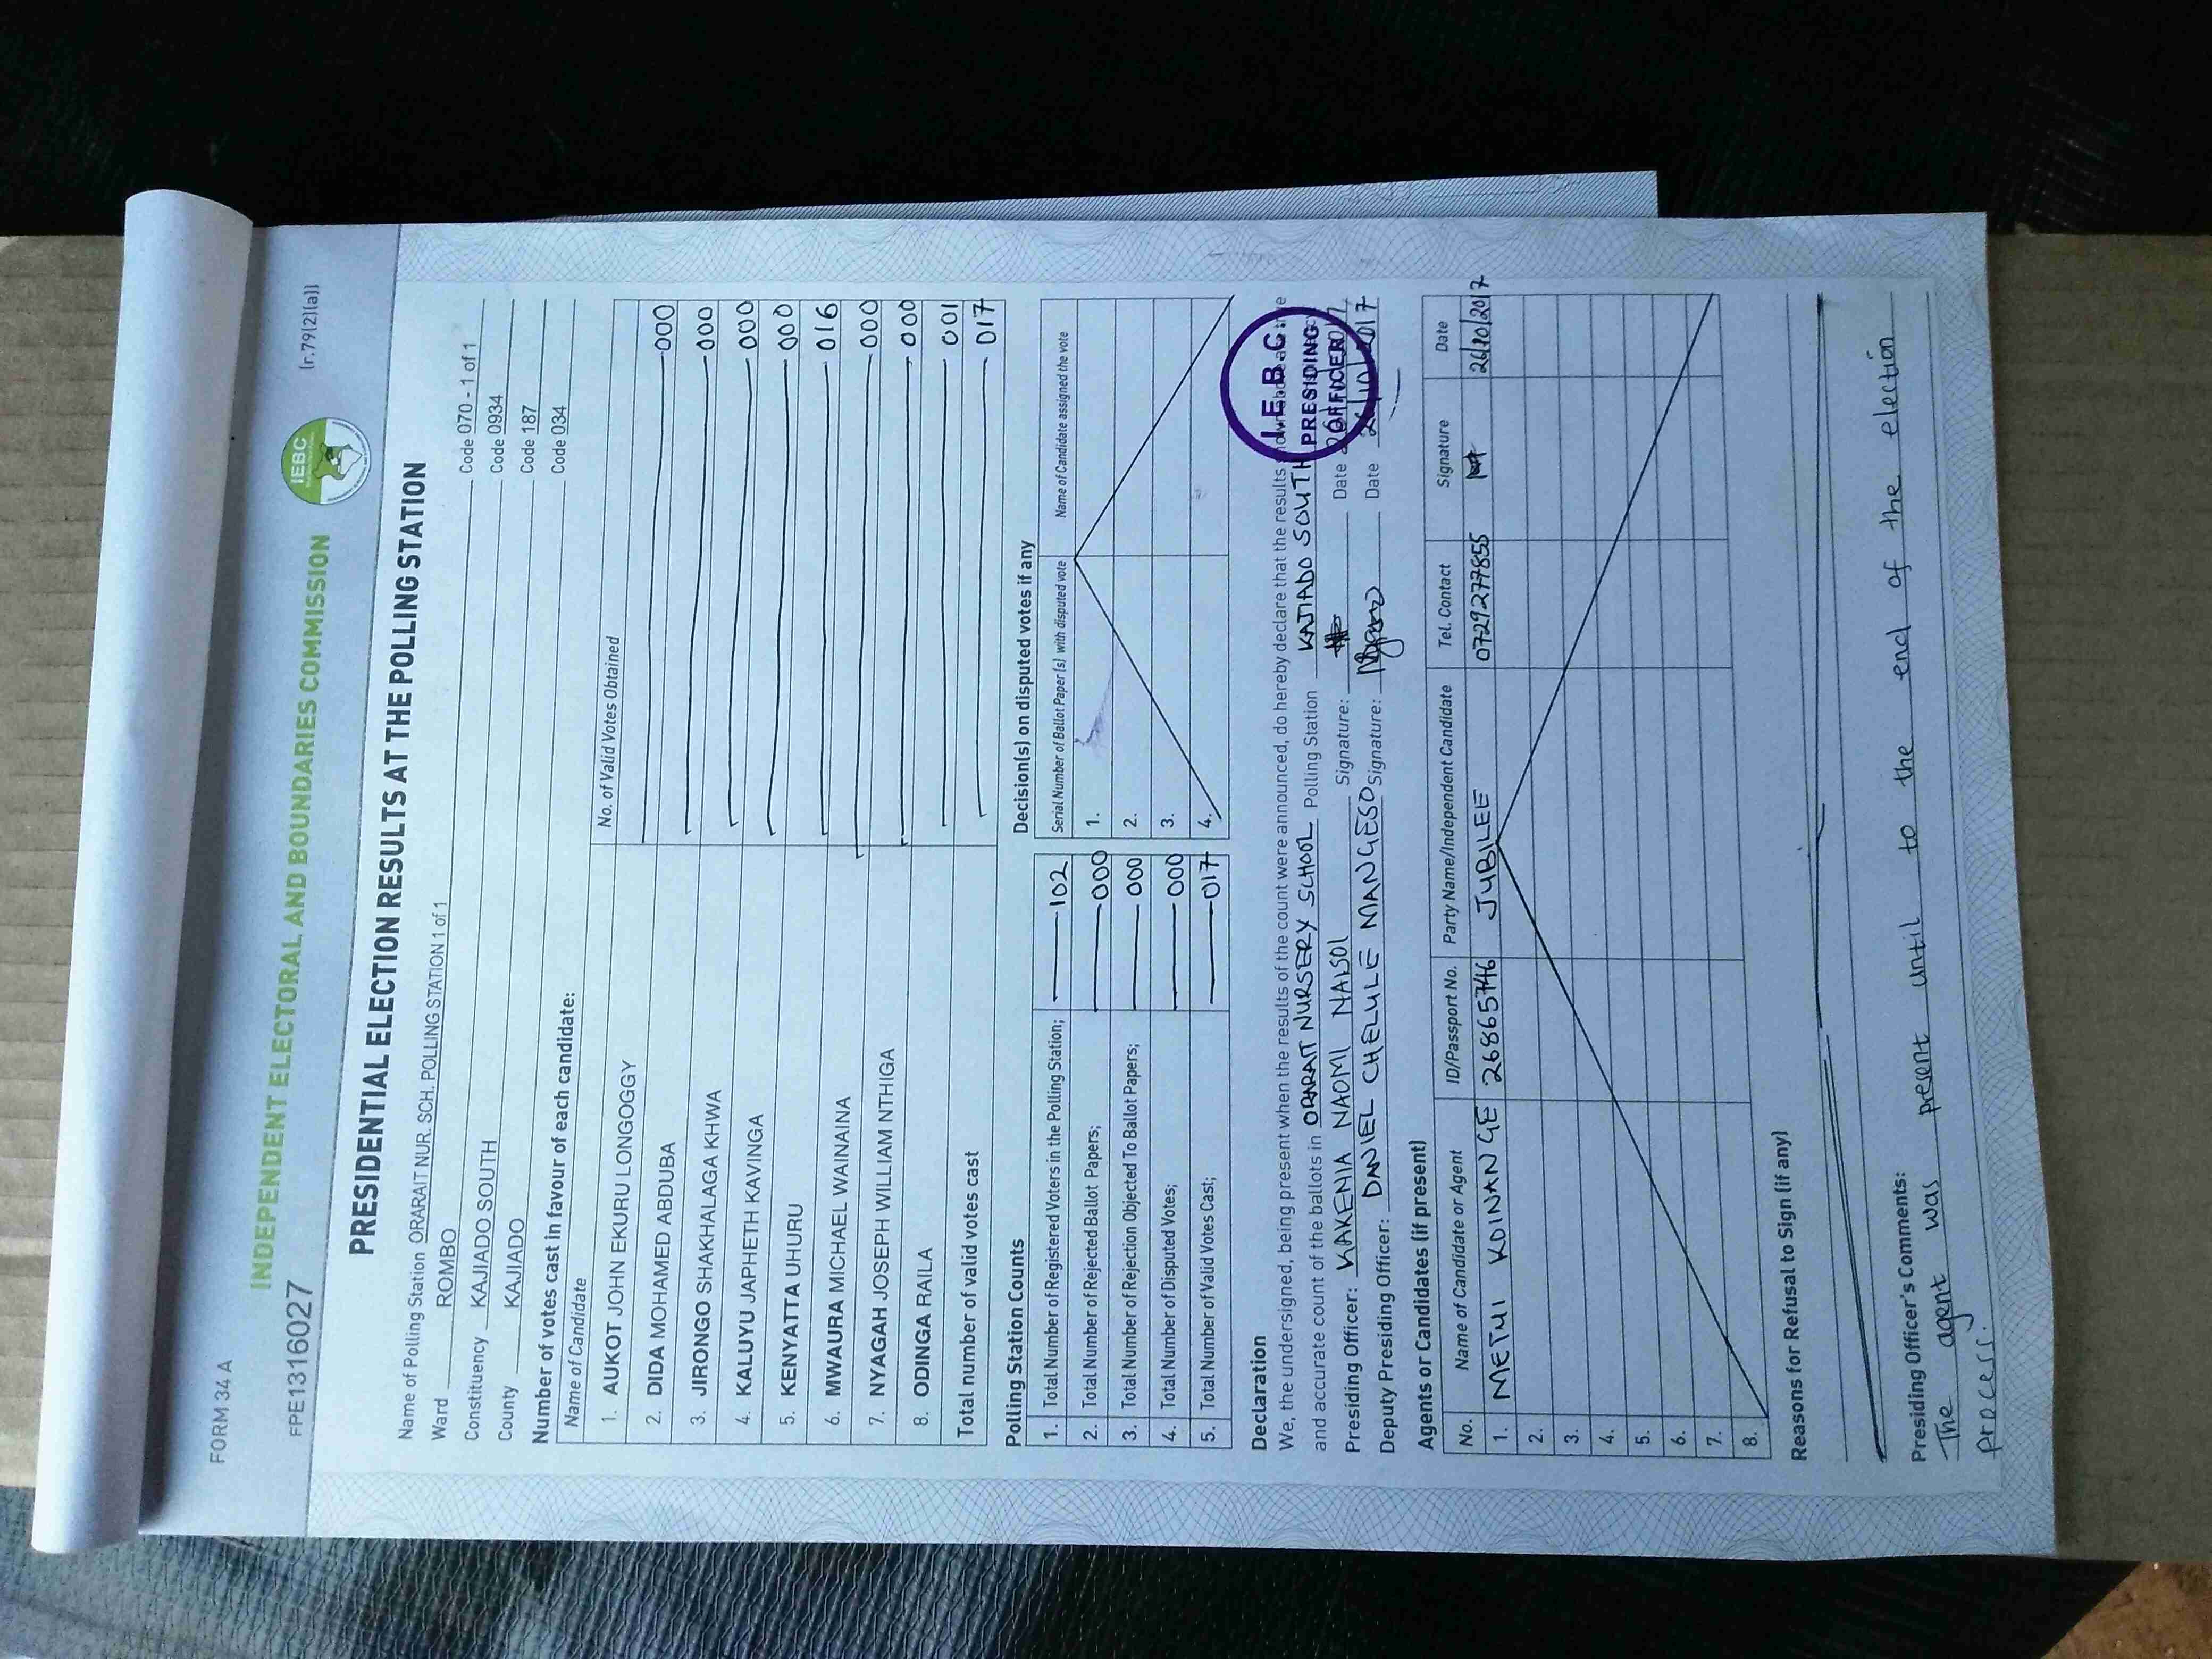 FORM 34 A
(r.79(2)(a))
IEBC
INDEPENDENT ELECTORAL AND BOUNDARIES COMMISSION
FPE1316027
PRESIDENTIAL ELECTION RESULTS AT THE POLLING STATION
Name of Polling Station ORARAIT NUR. SCH. POLLING STATION 1 of 1 Code 070 - 1 of 1
Ward ROMBO Code 0934
Constituency KAJIADO SOUTH Code 187
County KAJIADO Code 034
Number of votes cast in favour of each candidate:
Name of Candidate No. of Valid Votes Obtained
1. AUKOT JOHN EKURU LONGOGGY 000
2. DIDA MOHAMED ABDUBA 000
3. JIRONGO SHAKHALAGA KHWA 000
4. KALUYU JAPHETH KAVINGA 000
5. KENYATTA UHURU 016
6. MWAURA MICHAEL WAINAINA 000
7. NYAGAH JOSEPH WILLIAM NTHIGA 000
8. ODINGA RAILA 001
Total number of valid votes cast 017
Polling Station Counts
1. Total Number of Registered Voters in the Polling Station; 102
2. Total Number of Rejected Ballot Papers; 000
3. Total Number of Rejection Objected To Ballot Papers; 000
4. Total Number of Disputed Votes; 000
5. Total Number of Valid Votes Cast; 017
Decision(s) on disputed votes if any
Serial Number of Ballot Paper(s) with disputed vote Name of Candidate assigned the vote
1.
2.
3.
4.
Declaration
We, the undersigned, being present when the results of the count were announced, do hereby declare that the results shown above are the
and accurate count of the ballots in ORARAIT NURSERY SCHOOL Polling Station KAJIADO SOUTH
Presiding Officer: KAKENIA NAOMI NAISOI Signature: Date
Deputy Presiding Officer: DANIEL CHELULE MANGESO Signature: Date 26/10/2017
I.E.B.C.
PRESIDING
OFFICER
Agents or Candidates (if present)
No. Name of Candidate or Agent ID/Passport No. Party Name/Independent Candidate Tel. Contact Signature Date
1. METUI KOINANGE 26865746 JUBILEE 0729277855 26/10/2017
2.
3.
4.
5.
6.
7.
8.
Reasons for Refusal to Sign (if any)
Presiding Officer's Comments:
The agent was present until to the end of the election
process.